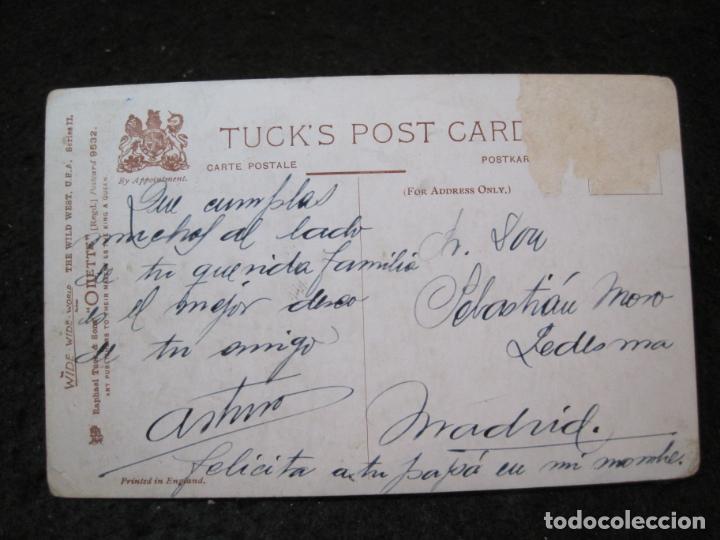 TUCK'S POST CARD
CARTE POSTALE
POSTKAR
(FOR ADDRESS ONLY.)
By Appointment.
THE WIDE-WIDE-WORLD THE WILD WEST, U.S.A. Series II.
Raphael Tuck & Sons' "OILETTE" [Regd.] Postcard 9532.
ART PUBLISHERS TO THEIR MAJESTIES THE KING & QUEEN.
Que cumplas
muchos al lado
de tu querida familia
es el mejor deseo
de tu amigo
Arturo
Sr. Don
Sebastián Moro
Ledesma
Madrid.
felicita a tu papá en mi nombre.
Printed in England.
todocoleccion.net